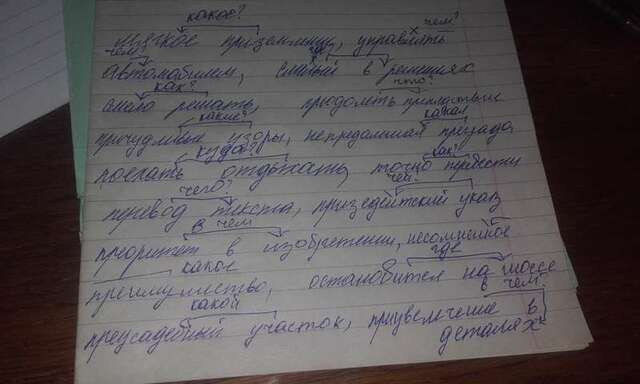 какое?
мягкое приземление, управлять
чем?
чем?
автомобилем, слабый в решениях
как?
чего?
смело решать, преодолеть препятствие
какие?
какая
причудливые узоры, непреодолимая преграда
куда?
как?
поехать отдыхать, точно перевести
чего?
чей?
перевод текста, президентский указ
в чём
приоритет в изобретении, несомненное
какое
где
преимущество, остановится на шоссе
какой
в чем?
предусадебный участок, приувеличение в
деталях